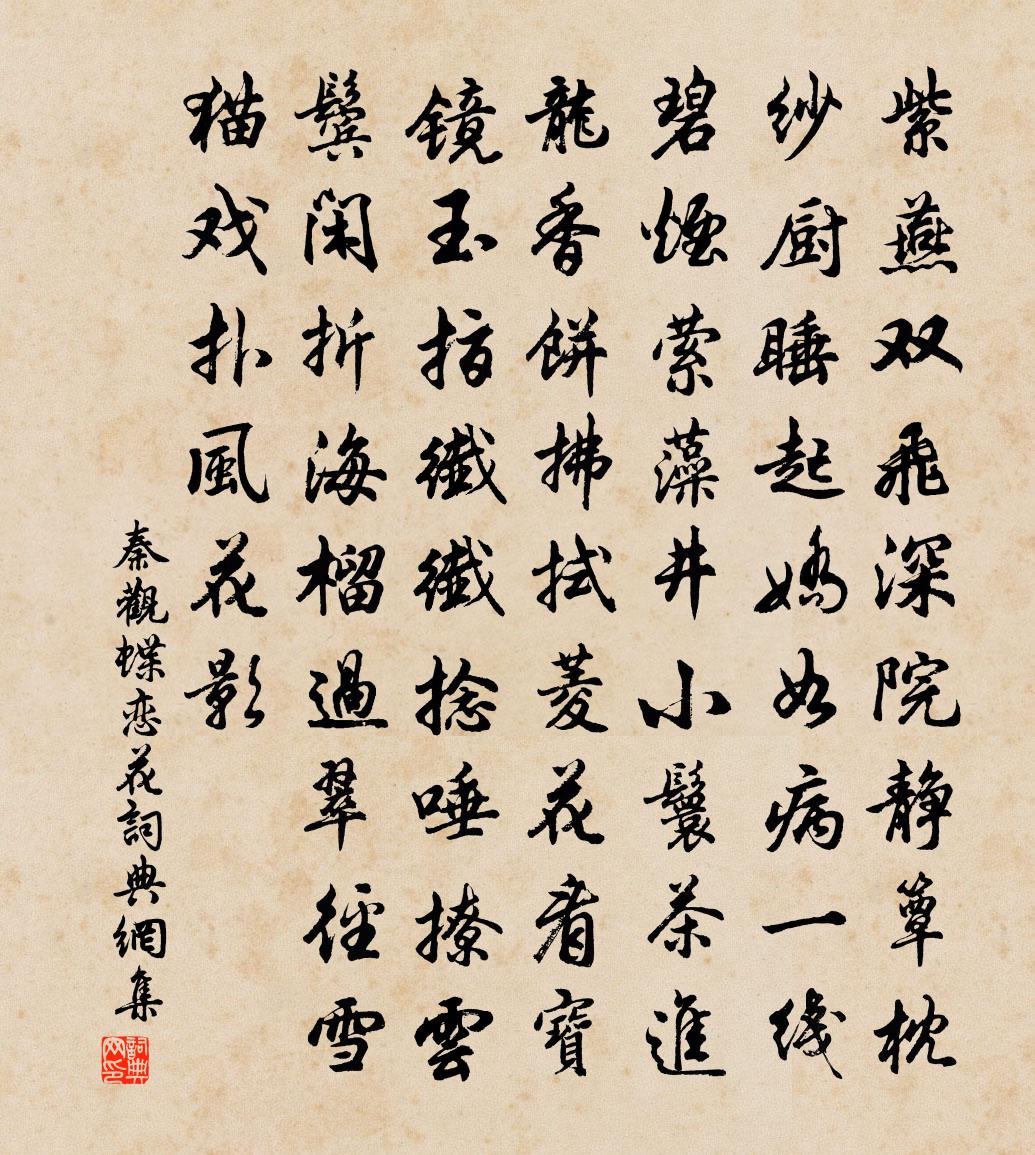 紫燕双飛深院静簟枕
纱厨睡起嬌如病一线
碧煙萦藻井小鬟茶進
龍香餅拂拭菱花看寶
镜玉指纖纖捻唾撩雲
鬓闲折海榴過翠径雪
猫戏扑風花影
秦觀蝶恋花詞典網集
詞典网印